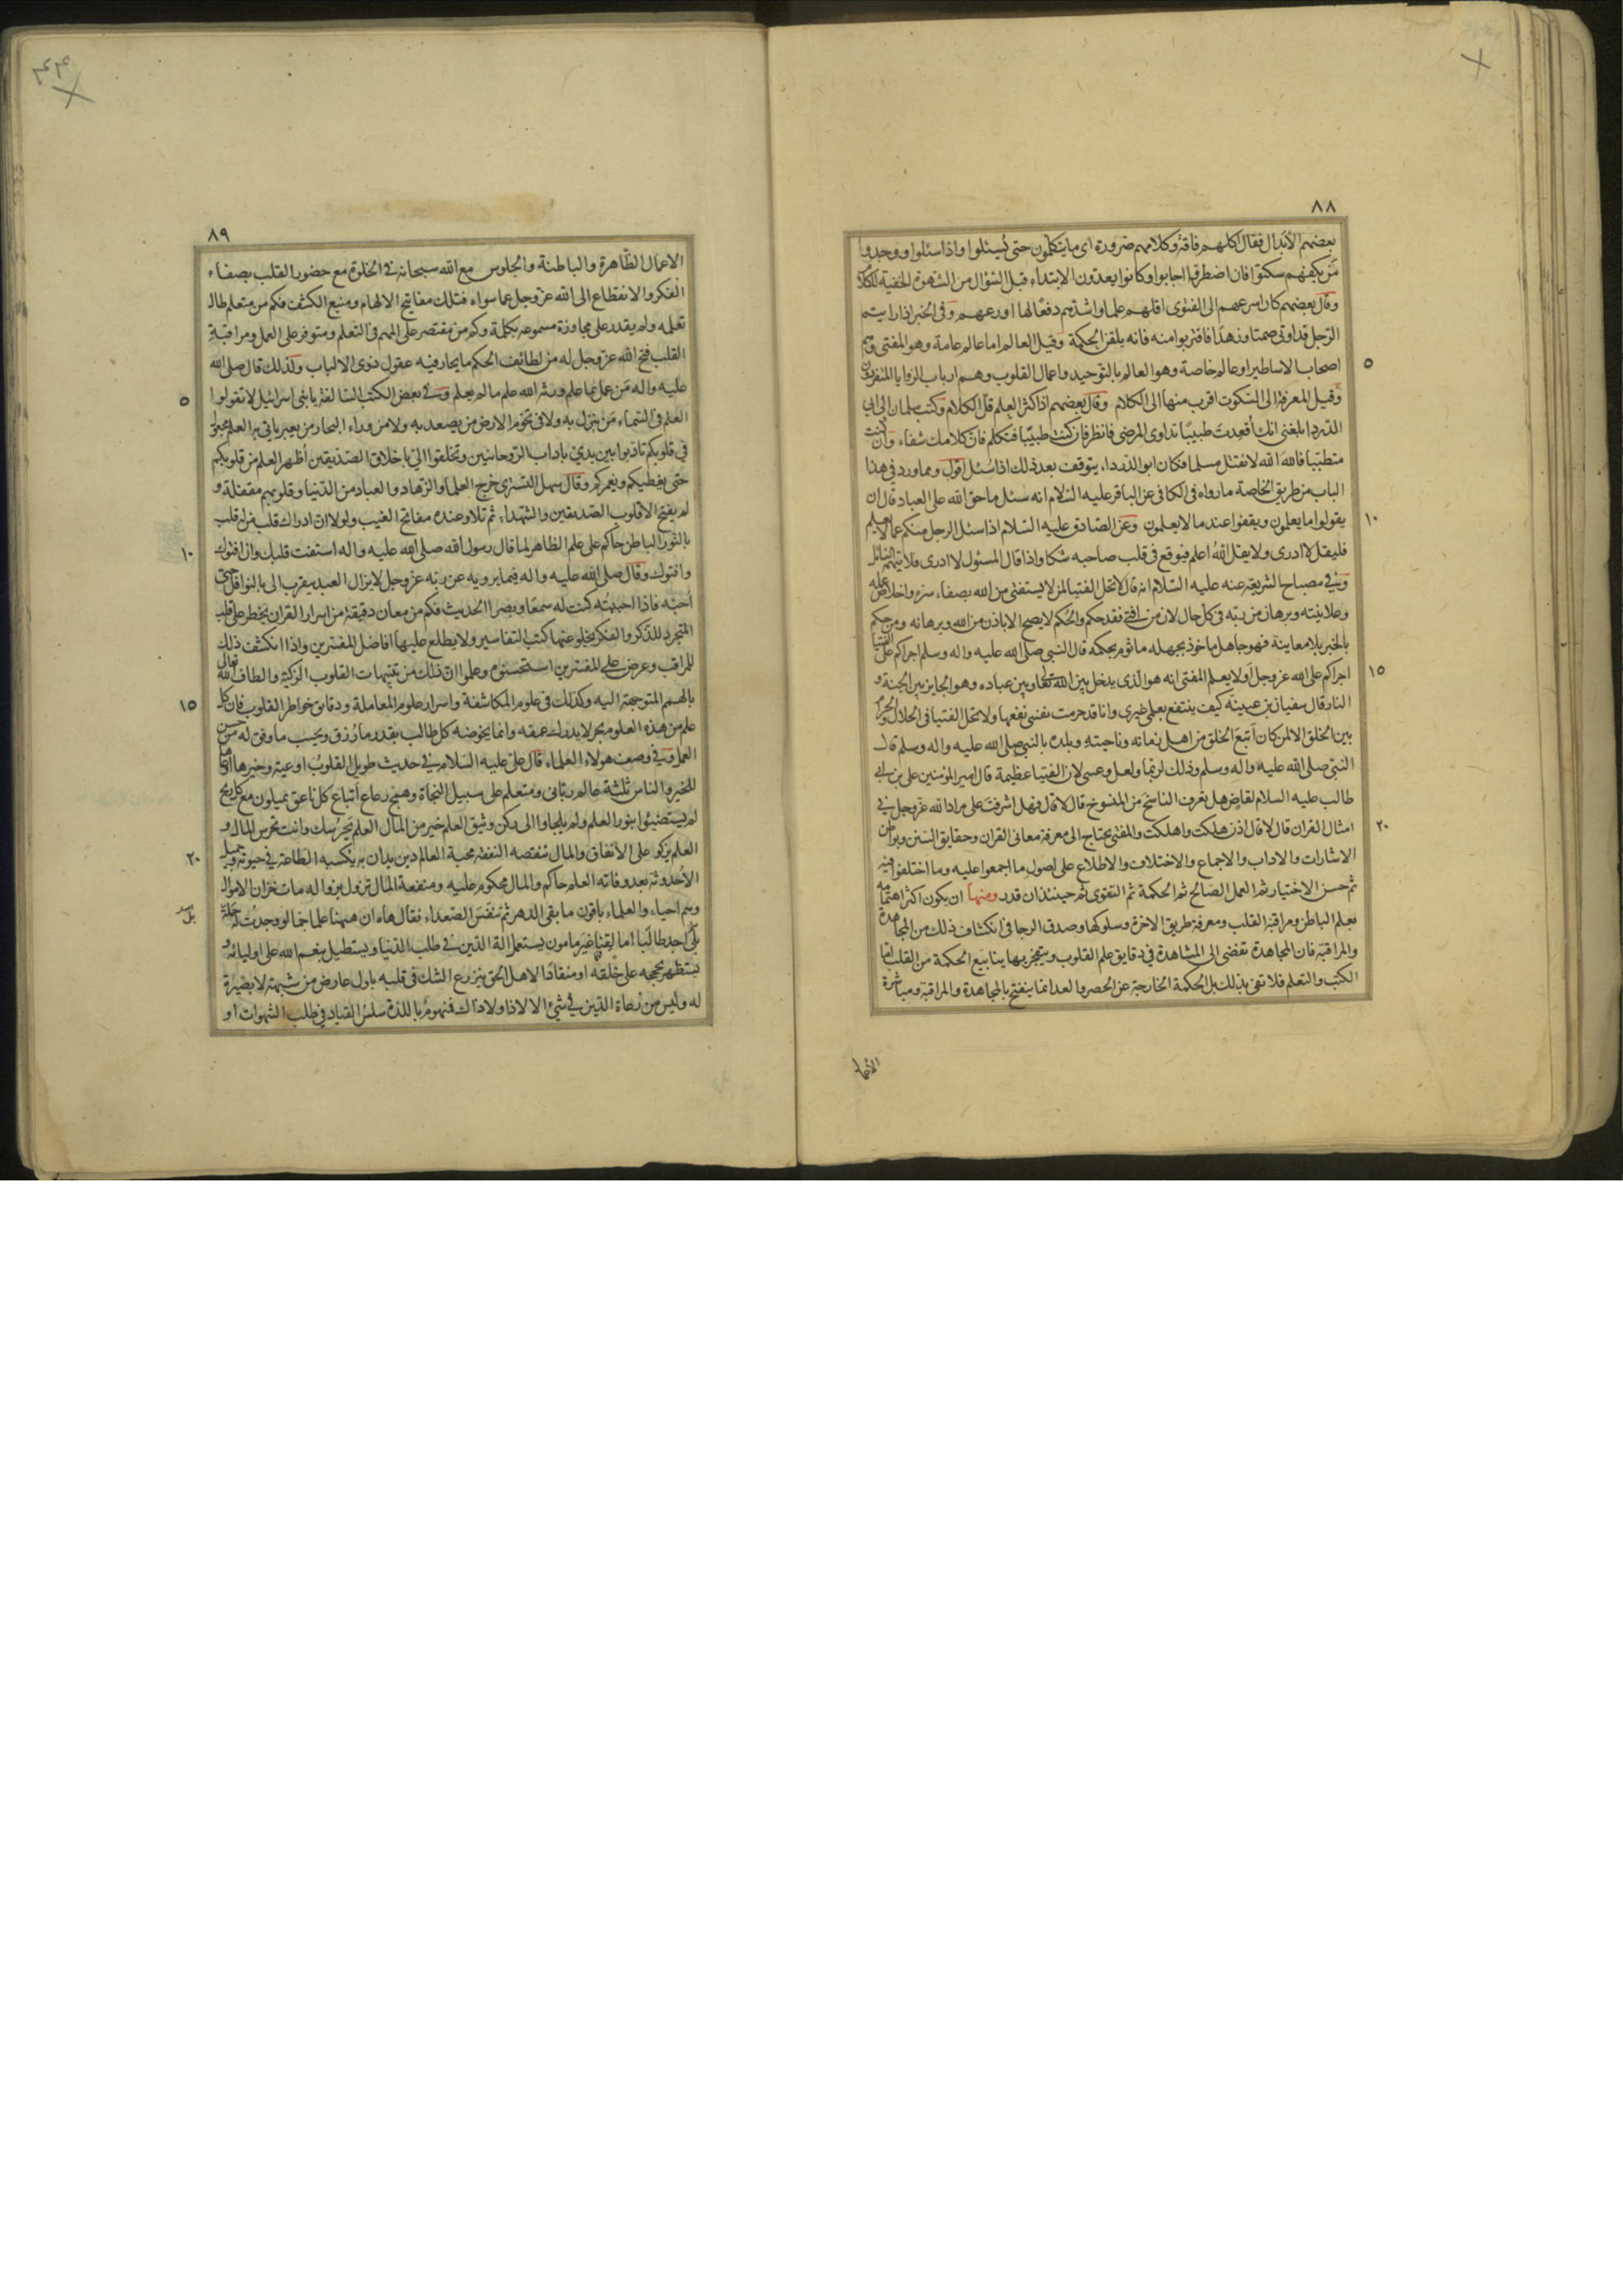 ٨٨
بعضهم الأبدال فقال اكلهم فاقة وكلامهم ضرورة اى ما يتكلمون حتى يُسئلوا واذا سئلوا ووجدوا
مَن يكفيهم سكتوا فان اضطروا اجابوا وكانوا يعدون الابتداء قبل السّؤال من الشهوة الخفية للكلام
وقال بعضهم كان اسرعهم الى الفتوى اقلهم علما واشدّهم دفعًا لها اورعهم وفى الخبر اذا رايتم
الرّجل قد اوتى صمتا وزهدًا فاقتربوا منه فانه يلقن الحكمة وقيل العالم اما عالم عامة وهو المفتى وهم
٥
اصحاب الاساطين او عالم خاصة وهو العالم بالتوحيد واعمال القلوب وهم ارباب الزوايا المنفردون
وقيل المعرفة الى السّكوت اقرب منها الى الكلام وقال بعضهم اذا كثر العلم قلّ الكلام وكتب سلمان الى ابى
الدّرداء بلغنى انك اُقعِدتَ طبيبًا تداوى المرضى فانظر فان كنت طبيبًا فتكلم فانّ كلامك شفاء وان كنت
متطببًا فالله الله لا تقتل مسلما فكان ابو الدّرداء يتوقف بعد ذلك اذا سُئل اقول ومما ورد فى هذا
الباب من طريق الخاصة ما رواه فى الكافى عن الباقر عليه السّلام انه سئل ما حق الله على العباد قال ان
١٠
يقولوا ما يعلمون ويقفوا عند ما لا يعلمون وعن الصّادق عليه السّلام اذا سئل الرجل منكم عما لا يعلم
فليقل لا ادرى ولا يقل اللهُ اعلم فيوقع فى قلب صاحبه شكا واذا قال المسئول لا ادرى فلا يتهمه السّائل
وفى مصباح الشريعة عنه عليه السّلام انه قال لا تحل الفتيا لمن لا يستفتى من الله بصفاء سرّه واخلاص عمله
وعلانيته وبرهان من ربّه فى كل حال لان من افتى فقد حكم والحُكم لا يصح الا باذن من الله وبرهانه ومن حكم
بالخبر بلا معاينة فهو جاهل ماخوذ بجهله ماثوم بحكمه قال النبى صلى الله عليه واله وسلم اجراكم على الفتيا
١٥
اجراكم على الله عز وجل اَولا يعلم المفتى انه هو الذى يدخل بين الله تعالى وبين عباده وهو الحايز بين الجنة و
النار قال سفيان بن عيينة كيف ينتفع بعلمى غيرى وانا قد حرمت نفسى نفعها ولا تحل الفتيا فى الحلال والحرام
بين الخلق الا لمن كان اَتبعَ الخلق من اهل زمانه وناحيته وبلده بالنبى صلى الله عليه واله وسلم قال
النبى صلى الله عليه واله وسلم وذلك لربّما ولعل وعسى لان الفتيا عظيمة قال امير المؤمنين على بن ابى
طالب عليه السلام لقاضٍ هل تعرف الناسخ من المنسوخ قال لا قال فهل اشرفتَ على مراد الله عز وجل فى
٢٠
امثال القران قال لا قال اذن هلكت واهلكت والمفتى يحتاج الى معرفة معانى القران وحقايق السّنن وبواطن
الاشارات والاداب والاجماع والاختلاف والاطلاع على اصول ما اجمعوا عليه وما اختلفوا فيه
ثم حسن الاختيار ثم العمل الصّالح ثم الحكمة ثم التقوى ثم حينئذ ان قدر ومنها ان يكون اكثر اهتمامه
بعلم الباطن ومراقبة القلب ومعرفة طريق الاخرة وسلوكها وصدق الرجا فى انكشاف ذلك من المجاهدة
والمراقبة فان المجاهدة تفضى الى المشاهدة فى دقايق علم القلوب ويتفجر بها ينابيع الحكمة من القلب امّا
الكتب والتعلم فلا تفى بذلك بل الحكمة الخارجة عن الحصر والعد انما ينفتح بالمجاهدة والمراقبة ومباشرة
الأعمال
٨٩
الاعمال الظّاهرة والباطنة والجلوس مع الله سبحانه فى الخلوة مع حضور القلب بصفاء
الفكر والانقطاع الى الله عز وجل عما سواه فتلك مفاتيح الالهام ومنبع الكشف فكم من متعلم طال
تعلمه ولم يقدر على مجاوزة مسموعه بكلمة وكم من مقتصر على المهم فى التعلم ومتوفر على العمل ومراقبة
القلب فتح الله عز وجل له من لطائف الحكم ما يحار فيه عقول ذوى الالباب ولذلك قال صلى الله
٥
عليه واله مَن عمل بما علم ورثه الله علم ما لم يعلم وفى بعض الكتب السّالفة يا بنى اسرائيل لا تقولوا
العلم فى السّماء مَن ينزل به ولا فى تخوم الارض من يصعد به ولا من وراء البحار من يعبر ياتى به العلم مجعول
فى قلوبكم تادبوا بين يديّ باداب الرّوحانيين وتخلقوا الىّ باخلاق الصّدّيقين اُظهر العلم من قلوبكم
حتى يغطيكم ويغمركم وقال سهل التسترى خرج العلماء والزهاد والعباد من الدّنيا وقلوبهم مقفلة و
لم يفتح الا قلوب الصّديقين والشهداء ثم تلا وعنده مفاتح الغيب ولولا ان ادراك قلب من له قلب
١٠
بالنّور الباطن حاكم على علم الظاهر لما قال رسول الله صلى الله عليه واله استفت قلبك وان افتوك
وافتوك وقال صلى الله عليه واله فيما يرويه عن ربّه عز وجل لا يزال العبد يتقرب الى بالنوافل حتى
اُحبّه فاذا احببتُه كنت له سمعًا وبصرا الحديث فكم من معان دقيقة من اسرار القران يخطر على قلب
المتجرد للذّكر والفكر يخلو عنها كتب التفاسير ولا يطلع عليها افاضل المفسّرين واذا انكشف ذلك
للمراقب وعرض على المفسّرين استحسنوه وعلموا ان ذلك من تنبيهات القلوب الزكية والطاف الله تعالى
١٥
بالهمم المتوجهة اليه وكذلك فى علوم المكاشفة واسرار علوم المعاملة ودقايق خواطر القلوب فان كل
علم من هذه العلوم بحر لا يدرك عمقه وانما يخوضه كل طالب بقدر ما رُزق وبحسب ما وفق له من حسن
العمل وفى وصف هولاء العلماء قال علىّ عليه السلام فى حديث طويل القلوبُ اوعية وخيرها اوعاها
للخير والناس ثلثة عالم ربّانى ومتعلم على سبيل النجاة وهمج رعاع اتباع كل ناعق يميلون مع كل ريح
لم يستضيئوا بنور العلم ولم يلجاوا الى ركن وثيق العلم خير من المال العلم يحرُسك وانت تحرس المال و
٢٠
العلم يزكو على الانفاق والمال تنقصه النفقة محبة العالم دين يدان به يكسبه الطاعة فى حيوته وجميل
الاُحدوثة بعد وفاته العلم حاكم والمال محكوم عليه ومنفعة المال تزول بزواله مات خزان الاموال
وهم احياء والعلماء باقون ما بقى الدهر ثم تنفّسَ الصّعداء فقال هاه ان ههنا علما جما لو وجدت له حملة
بلى اجد طالبًا اما لقنا غيرَ مامون يستعمل الة الدّين فى طلب الدّنيا ويستطيل بنعم الله على اوليائه و
يستظهر بحججه على خلقه او منقادًا لاهل الحق ينزرع الشك فى قلبه باول عارض من شبهة لا بصيرة
له وليس من رُعاة الدّين فى شئ لا لا ذا ولا ذاك فمنهومٌ باللذة سَلسُ القياد فى طلب الشهوات او